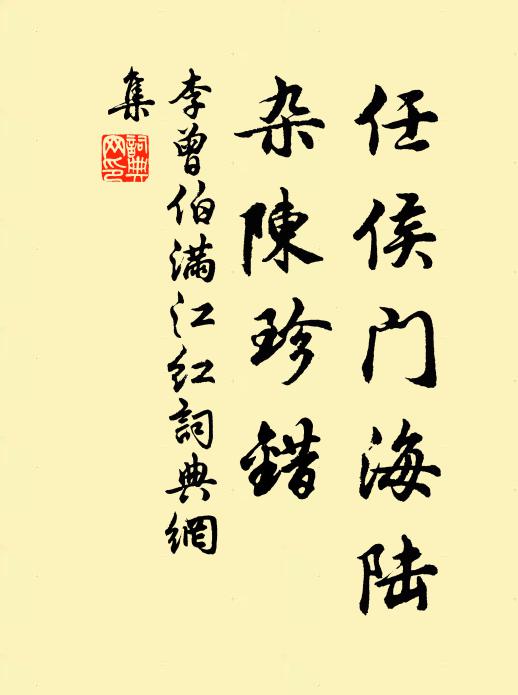 任侯门海陆
杂陳珍錯
李曾伯满江红詞典網
集
詞典网印